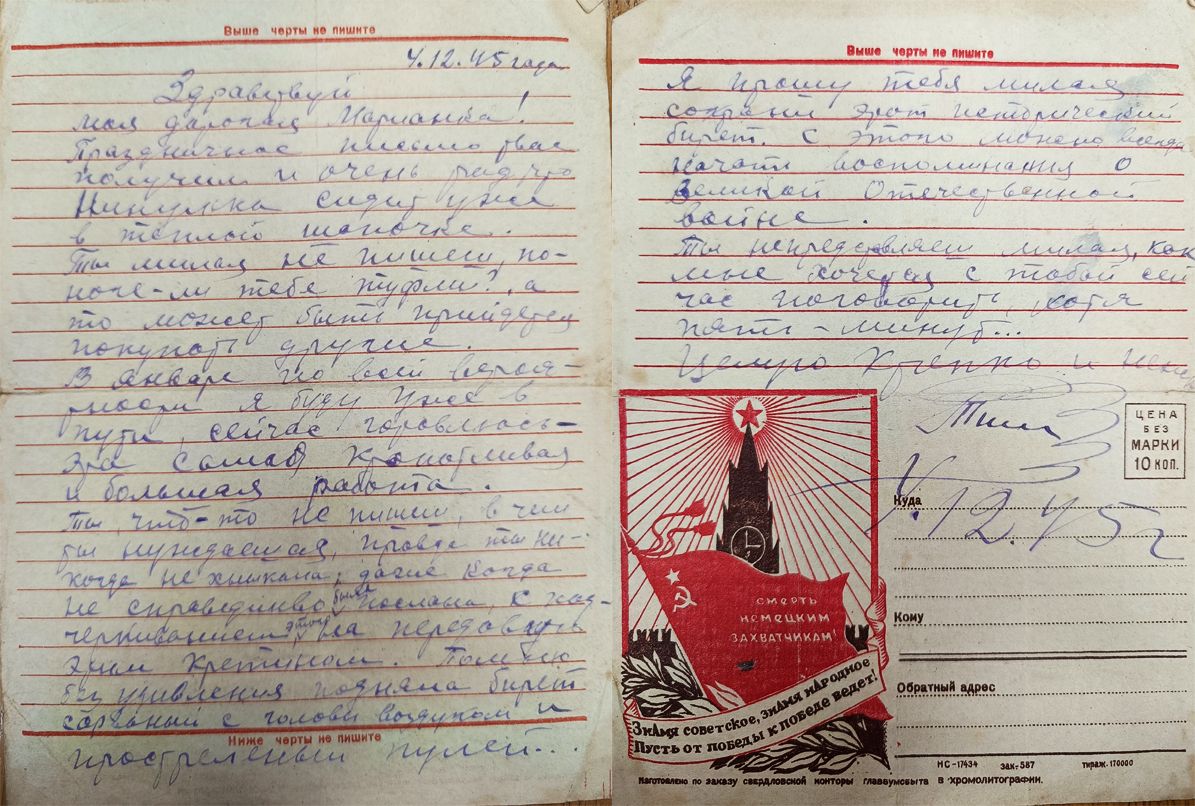 Выше черты не пишите
4.12.45 года
Здравствуй
моя дарогая Марианка!
Праздничное письмо твае
получил и очень рад, что
Нинулька сидит уже
в теплой шапочке.
Ты милая не пишеш, по-
ноче-ли тебе туфли?, а
то может быть прийдется
покупать другие.
В январе по всей вероя-
тности я буду уже в
пути, сейчас готовлюсь-
эта самая кропотливая
и большая работа.
Ты, что-то не пишеш, в чем
ты нуждаешся, правда ты ни-
когда не хныкала, даже когда
не справедливо была послана, к
этого на передовую
этим кретином. Помню
без удивления подняла билет
сорваный с головы воздухом и
Ниже черты не пишите
простреленый пулей...
Выше черты не пишите
Я прошу тебя милая
сохрани этот исторический
билет. С этого можно всегда
начать воспоминания о
Великой Отечественной
войне.
Ты непредставляеш милая, как
мне хочется с тобой сей
час поговорить, хотя
пять-минут...
Целую Крепко и
4.12.45 г
ЦЕНА
БЕЗ
МАРКИ
10 КОП.
Куда
Кому
Обратный адрес
СМЕРТЬ
НЕМЕЦКИМ
ЗАХВАТЧИКАМ!
ЗНАМЯ СОВЕТСКОЕ, ЗНАМЯ НАРОДНОЕ
ПУСТЬ ОТ ПОБЕДЫ К ПОБЕДЕ ВЕДЕТ!
НС-17434 зак.-587 тираж. 170000
Изготовлено по заказу свердловской конторы главвумсбыта в хромолитографии.